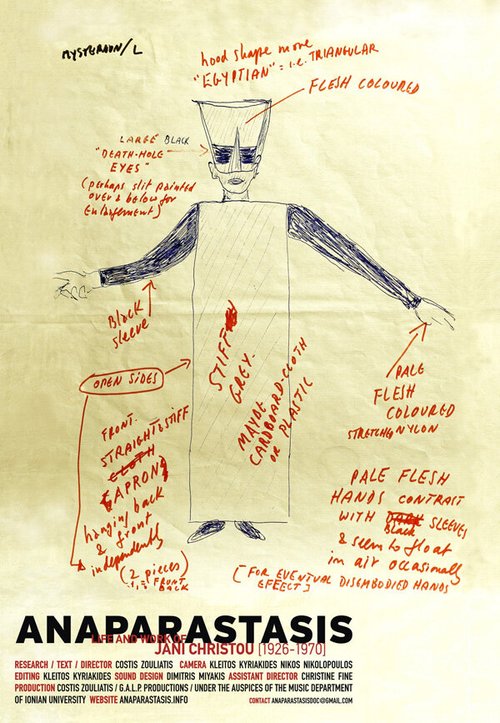 MYSTERION/L
hood shape more
"EGYPTIAN" = i.e. TRIANGULAR
FLESH COLOURED
LARGE BLACK
"DEATH-HOLE
EYES"
(perhaps slit painted
over & below for
Enlargement)
Black
sleeve
OPEN SIDES
STIFF
GREY.
MAYBE
CARDBOARD-CLOTH
OR PLASTIC
PALE
FLESH
COLOURED
STRETCHED NYLON
FRONT.
STRAIGHT & STIFF
CLOTH
(APRON)
hanging back
& front
independently
(2 pieces)
FRONT
BACK
PALE FLESH
HANDS CONTRAST
WITH Black SLEEVES
& seem to float
in air occasionally
[FOR EVENTUAL DISEMBODIED HANDS
EFFECT]
ANAPARASTASIS
LIFE AND WORK OF
JANI CHRISTOU [1926-1970]
RESEARCH / TEXT / DIRECTOR COSTIS ZOULIATIS CAMERA KLEITOS KYRIAKIDES NIKOS NIKOLOPOULOS
EDITING KLEITOS KYRIAKIDES SOUND DESIGN DIMITRIS MIYAKIS ASSISTANT DIRECTOR CHRISTINE FINE
PRODUCTION COSTIS ZOULIATIS / G.A.L.P. PRODUCTIONS / UNDER THE AUSPICES OF THE MUSIC DEPARTMENT
OF IONIAN UNIVERSITY WEBSITE ANAPARASTASIS.INFO
CONTACT ANAPARASTASISDOC@GMAIL.COM